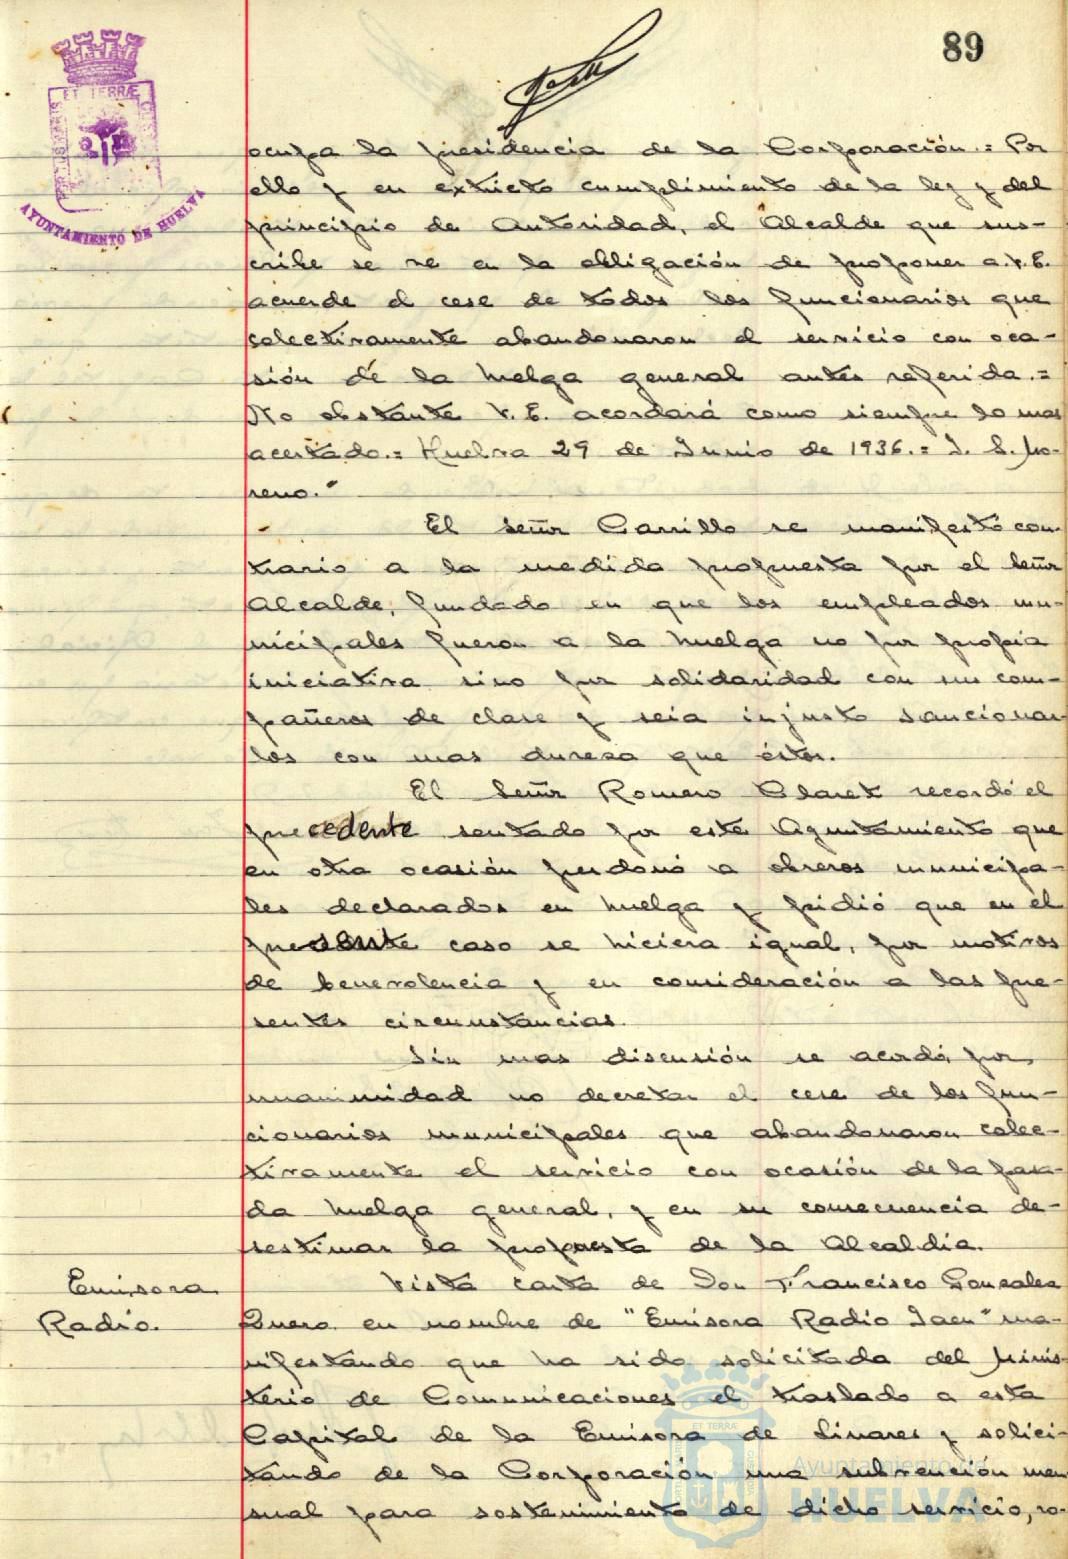 89
ET TERRÆ
AYUNTAMIENTO DE HUELVA
ocupa la presidencia de la Corporación.= Por
ello y en extricto cumplimiento de la ley y del
principio de Autoridad, el Alcalde que sus-
cribe se ve en la obligación de proponer a V.E.
acuerde el cese de todos los funcionarios que
colectivamente abandonaron el servicio con oca-
sión de la huelga general antes referida.=
No obstante V.E. acordará como siempre lo mas
acertado.= Huelva 29 de Junio de 1936.= J. S. Mo-
reno."
El Señor Carrillo se manifestó con-
trario a la medida propuesta por el Señor
Alcalde, fundado en que los empleados mu-
nicipales fueron a la huelga no por propia
iniciativa sino por solidaridad con sus com-
pañeros de clase y seia injusto sancionar
los con mas dureza que éstos.
El Señor Romero Claret recordó el
precedente sentado por este Ayuntamiento que
en otra ocasión perdonó a obreros municipa-
les declarados en huelga y pidió que en el
presente caso se hiciera igual, por motivos
de benevolencia y en consideración a las pre-
sentes circunstancias.
Sin mas discusión se acordó por
unanimidad no decretar el cese de los fun-
cionarios municipales que abandonaron colec-
tivamente el servicio con ocasión de la pasa-
da huelga general, y en su consecuencia de-
sestimar la propuesta de la Alcaldia.
Emisora
Radio.
Vista carta de Don Francisco Gonzalez
en nombre de "Emisora Radio Jaen" ma-
nifestando que ha sido solicitada del Minis-
terio de Comunicaciones el traslado a esta
Capital de la Emisora de Linares y solici-
tando de la Corporación una subvención men-
sual para sostenimiento de dicho servicio, so-
ET TERRÆ
Ayuntamiento de
HUELVA